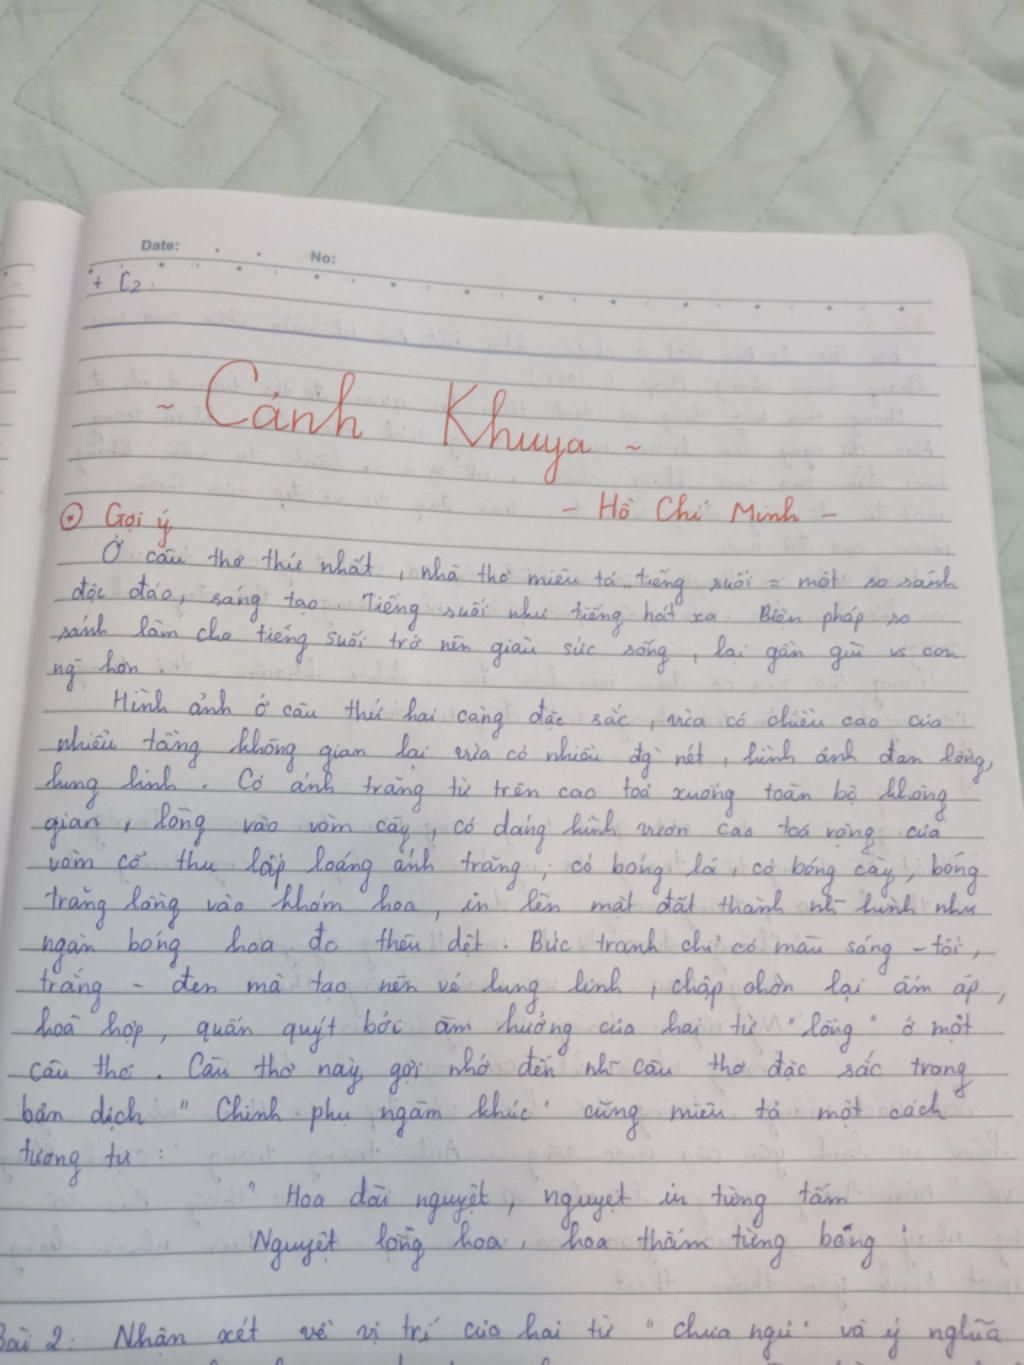 Date:
No:
+ C2.
~ Cảnh Khuya ~
- Hồ Chí Minh -
Gợi ý
Ở câu thơ thứ nhất, nhà thơ miêu tả tiếng suối = một so sánh
độc đáo, sáng tạo. Tiếng suối như tiếng hát xa. Biện pháp so
sánh làm cho tiếng suối trở nên giàu sức sống, lại gần gũi vs con
ng hơn.
Hình ảnh ở câu thứ hai càng đặc sắc, vừa có chiều cao của
nhiều tầng không gian lại vừa có nhiều đg nét, hình ảnh đan lồng,
lung linh. Có ánh trăng từ trên cao toả xuống toàn bộ không
gian, lồng vào vòm cây, có dáng hình vươn cao toả rộng của
vòm cổ thụ lấp loáng ánh trăng; có bóng lá, có bóng cây, bóng
trăng lồng vào khóm hoa, in lên mặt đất thành nh~ hình như
ngàn bóng hoa đc thêu dệt. Bức tranh chỉ có màu sáng - tối,
trắng - đen mà tạo nên vẻ lung linh, chập chờn lại ấm áp,
hoà hợp, quấn quýt bởi âm hưởng của hai từ "lồng" ở một
câu thơ. Câu thơ này gợi nhớ đến nh~ câu thơ đặc sắc trong
bản dịch "Chinh phụ ngâm khúc" cũng miêu tả một cách
tương tự:
"Hoa dãi nguyệt, nguyệt in từng tấm
Nguyệt lồng hoa, hoa thắm từng bông"
Bài 2: Nhận xét về vị trí của hai từ "chưa ngủ" và ý nghĩa